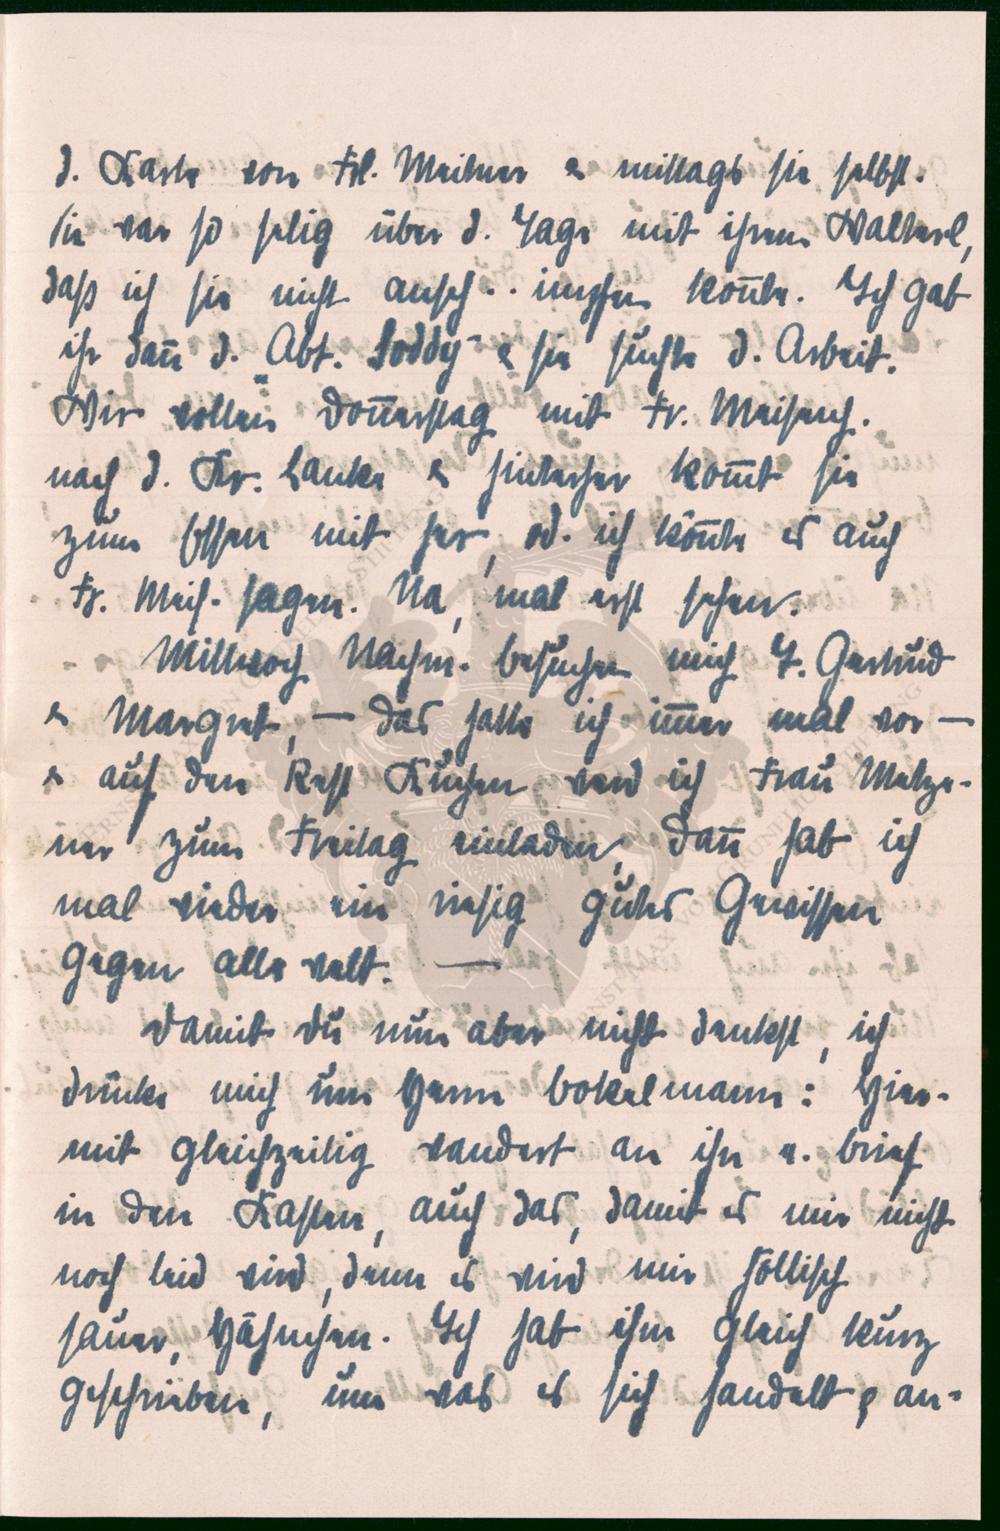 d. Karte von Frl. Meitner & mittags sie selbst.
Sie war so selig über d. Tage mit ihrem Walterl,
daß ich sie nicht ansch.. impfen kon̄te. Ich gab
ihr dan̄ d. Abt. "Soddy" & sie suchte d. Arbeit.
Wir wollen Don̄erstag mit Fr. Meisench.
nach d. Kr. Lanke & hinterher kom̄t sie
zum Essen mit her, od. ich kön̄te es auch
Fr. Meis. sagen. Na, mal erst sehen.
Mittwoch Nachm. besuchen mich T. Gertrud
& Margret, — das hatte ich im̄er mal vor —
& auf den Rest Kuchen werd ich Frau Metze-
ner zum Freitag einladen, dan̄ hab ich
mal wieder ein riesig gutes Gewissen
gegen alle Welt. —
Damit Du nun aber nicht denkst, ich
drücke mich um Herrn Bokelmann: Hier-
mit gleichzeitig wandert an ihn e. Brief
in den Kasten, auch das, damit es mir nicht
noch leid wird, denn es wird mir höllisch
sauer, Hähnchen. Ich hab ihm gleich kurz
geschrieben, um was es sich handelt & an-